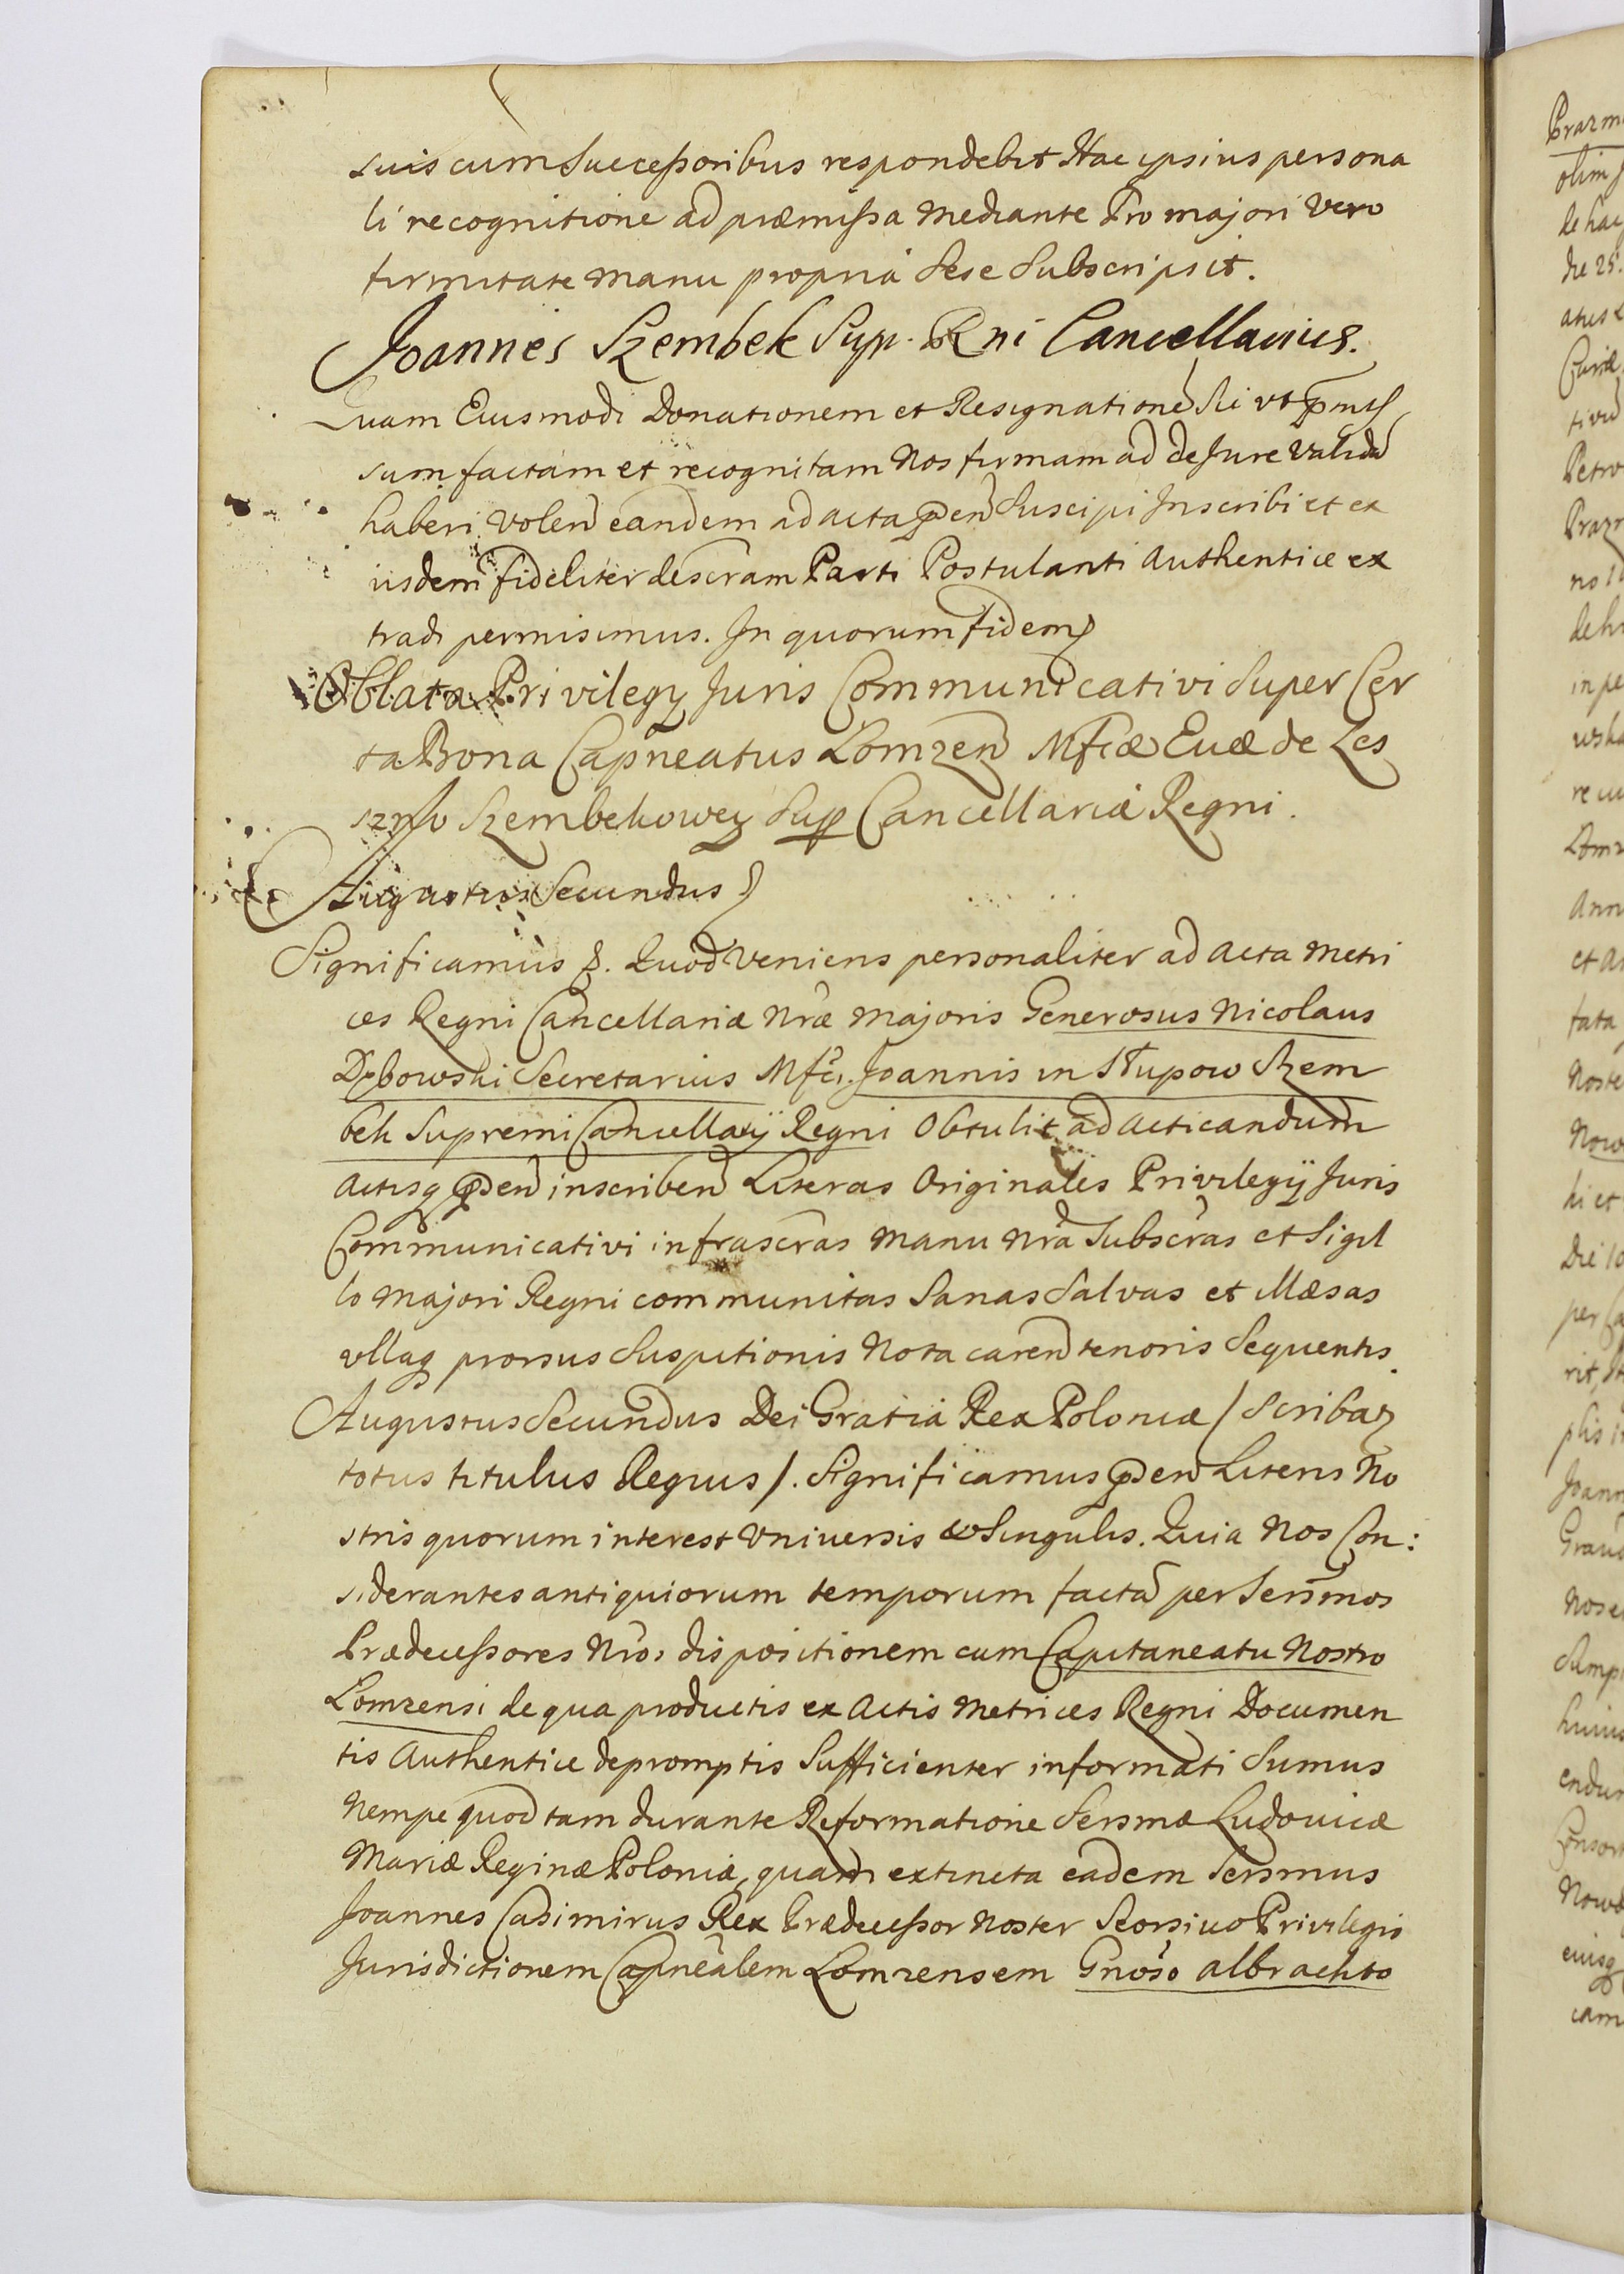 suis cum Successoribus respondebit Hac ipsius persona
li recognitione ad præmissa mediante Pro majori vero
firmitate manu propria Sese Subscripsit.
Joannes Szembek Sup. Rni Cancellarius.
Quam Eiusmodi Donationem et Resignatione Sic vt pmis
sum factam et recognitam Nos firmam ac de Jure valida
haberi volen eandem ad acta pñ Suscipi Inscribi et ex
iisdem fideliter descram Parti Postulanti Authentice ex
tradi permisimus. In quorum fidem
Oblata Privilegy Juris Communicativi Super Cer
ta Bona Capneatus Lomzen Mfcæ Euæ de Les
szno Szembekowey Sup Cancellaria Regni.
Augustus Secundus
Significamus &. Quod Veniens personaliter ad Acta Metri
ces Regni Cancellariæ Nræ Majoris Generosus Nicolaus
Dębowski Secretarius Mfci. Joannis in Słupow Szem
bek Supremi Cancellary Regni Obtulit ad acticandum
actisq pñ inscriben Literas Originales Privilegij Juris
Communicativi infrascras manu nra Subscras et Sigil
lo Majori Regni communitas Sanas Salvas et illæsas
ullaq prorsus Suspitionis Nota caren tenoris Sequentis
Augustus Secundus Dei Gratia Rex Poloniæ / Scribat
totus titulus Regius /. Significamus pñ Literis No
stris quorum interest Vniversis & Singulis. Quia Nos Con:
siderantes antiquiorum temporum facta per Sersmos
Prædecessores Nros dispositionem cum Capitaneatu Nostro
Lomzensi de qua productis ex Actis Metrices Regni Documen
tis Authentice depromptis Sufficienter informati Sumus
Nempe quod tam durante Reformatione Sersmæ Ludouicæ
Mariæ Reginæ Poloniæ, quam extincta eadem Sersmus
Joannes Casimirus Rex Prædecessor Noster Seorsivo Privilegio
Jurisdictionem Capnealem Lomzensem Gnoso Albrachto